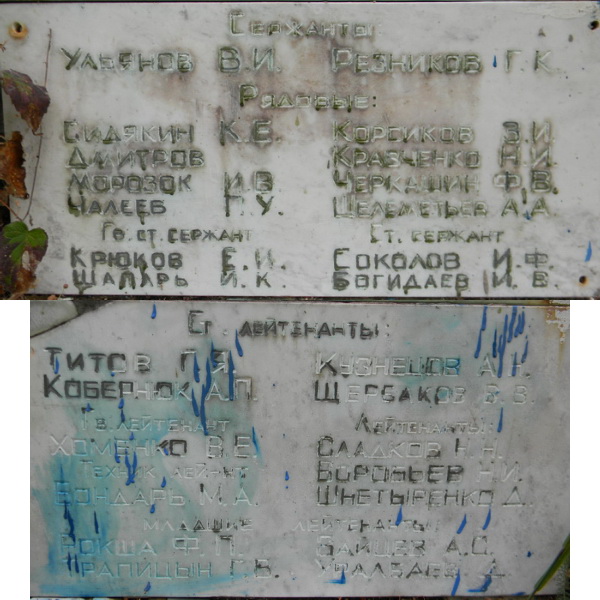 Сержанты:
Ульянов В.И. Резников Г.К.
Рядовые:
Сидякин К.Е. Корсиков В.И.
Дмитров Кравченко Н.И.
Морозок И.О. Черкашин Ф.В.
Налееб Г.У. Шелеметьев А.А.
Гв. ст. сержант Ст. сержант
Крюков Е.И. Соколов И.Ф.
Шапарь И.К. Богидаев И.В.
Ст. лейтенанты:
Титов Кузнецов А.Н.
Кобернюк А.П. Щербаков В.В.
Гв. лейтенант Лейтенанты:
Хоменко В.Е. Сладков Н.Н.
Техник лейтнт Воробьев И.
Бондарь М.А. Шнетыренко Д.
Младшие лейтенанты
Рокша Ф.П. Байцев А.С.
Трапицын Г.В. Уралбаев